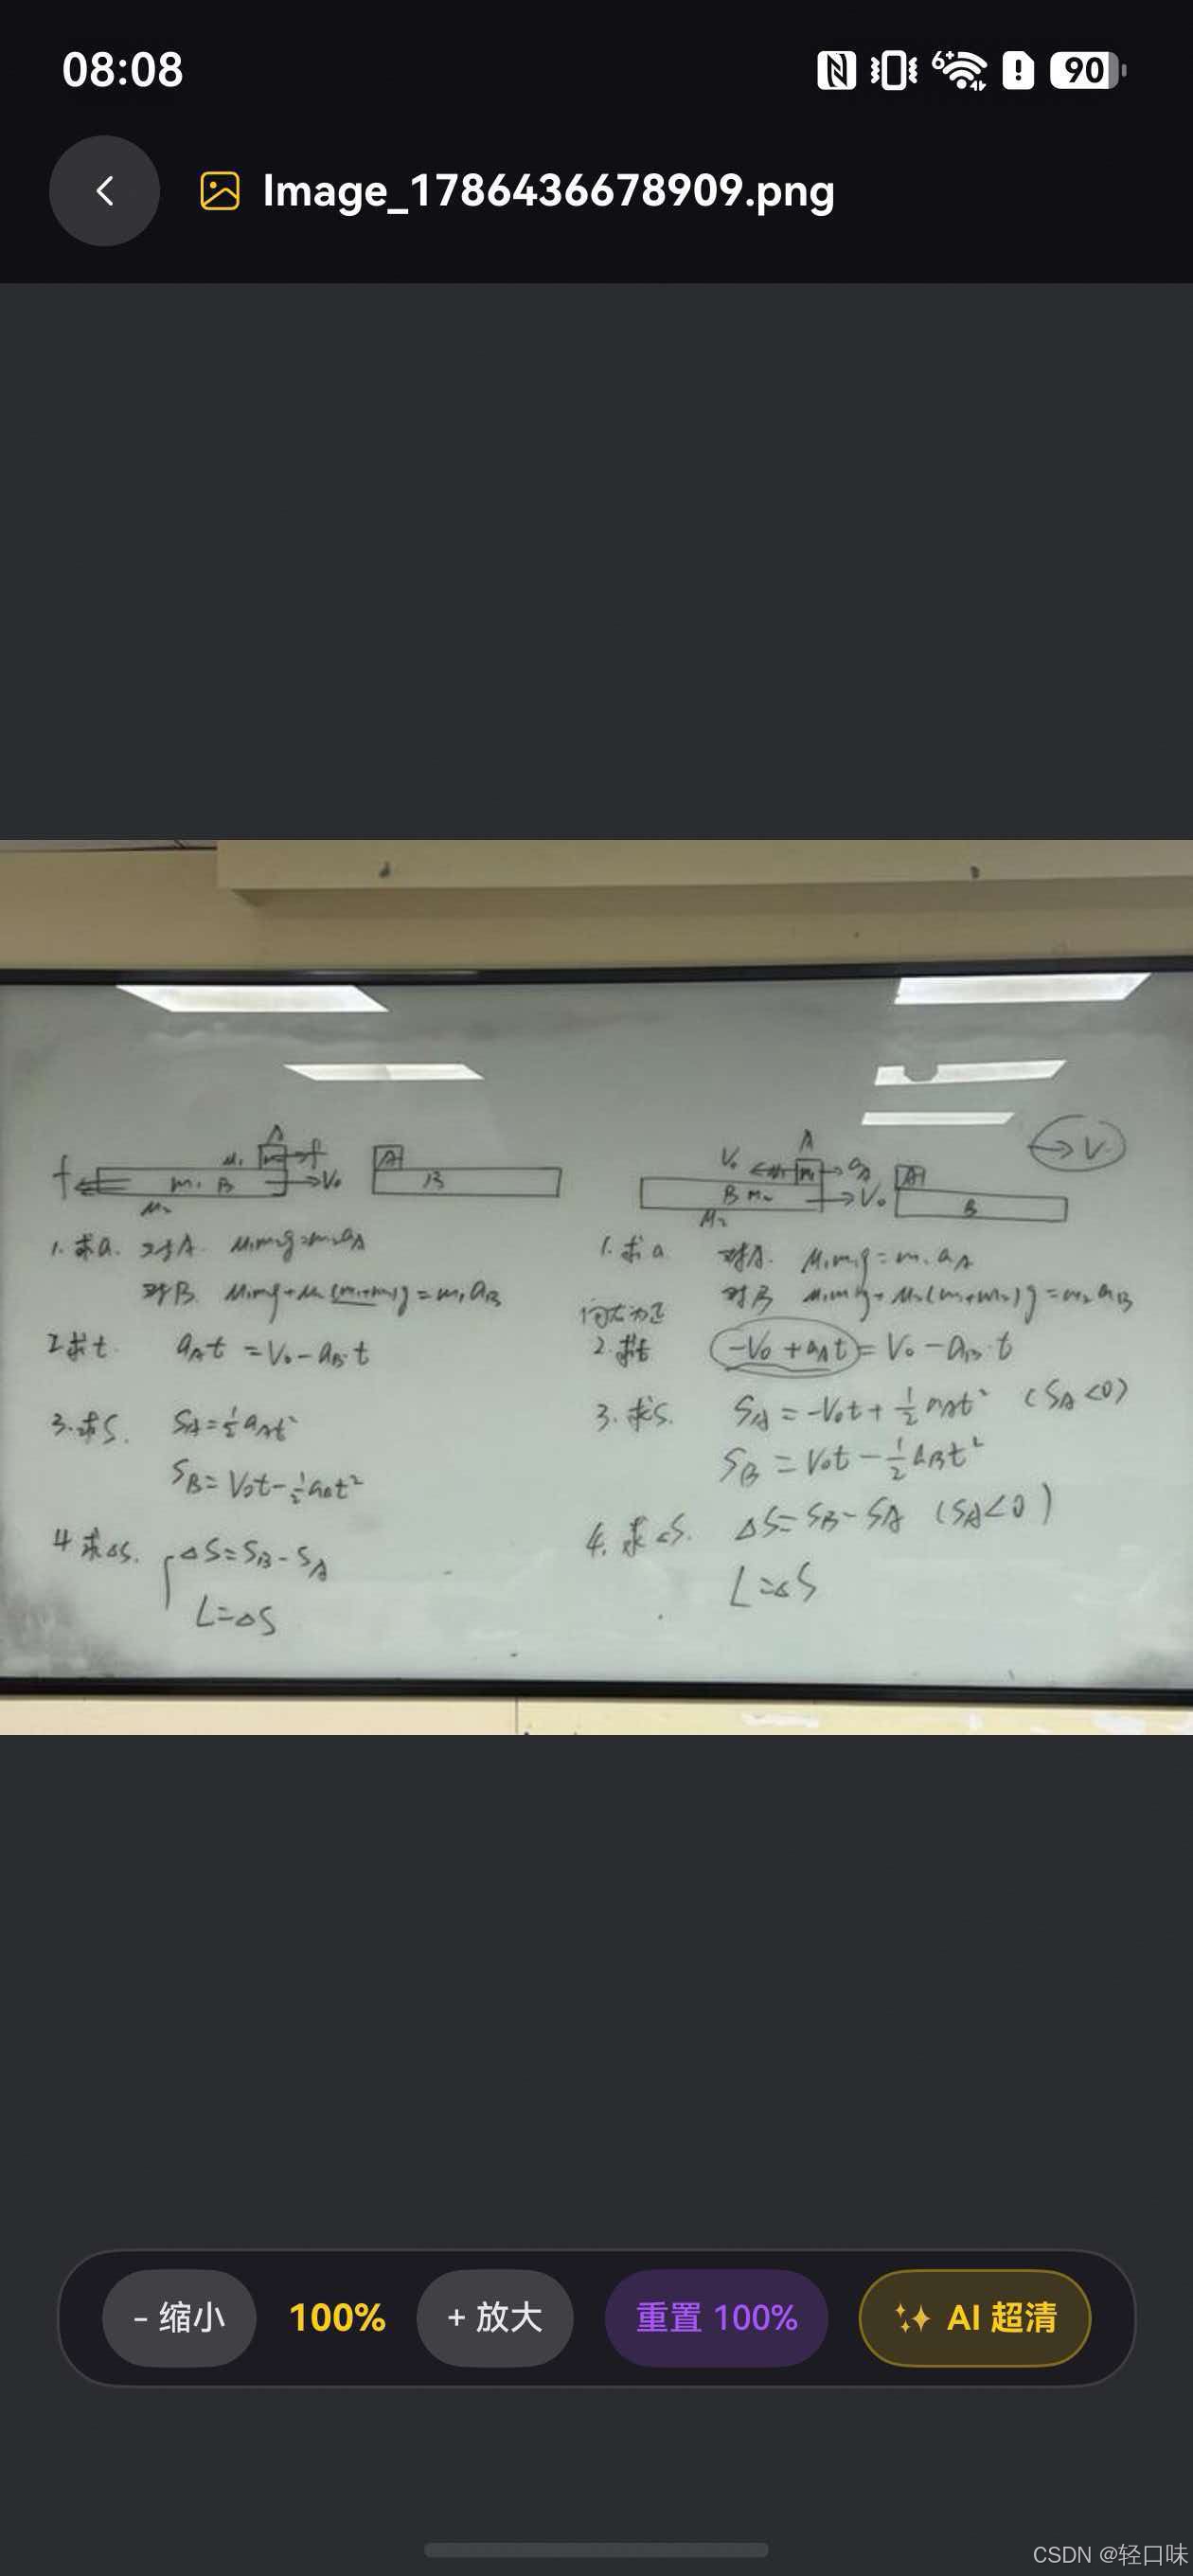 08:08
6+
90
Image_1786436678909.png
A
μ₁ m f
f m₁ B V₀
μ₂
A
B
1. 求a. 对A. μ₁m₁g=m₁aA
对B. μ₁m₁g+μ₂(m₁+m₂)g=m₁aB
2求t. aAt=V₀-aB·t
3.求S. SA=½aAt²
SB=V₀t-½aBt²
4求ΔS. ΔS=SB-SA
L=ΔS
→V
A
V₀ m₁ aA
B M₂ V₀
μ₂
A
B
1.求a. 对A. μ₁m₁g=m₁aA
对B μ₁m₁g+μ₂(m₁+m₂)g=m₂aB
向右为正
2.求t -V₀+aAt=V₀-aB·t
3.求S. SA=-V₀t+½aAt² (SA<0)
SB=V₀t-½aBt²
4.求ΔS. ΔS=SB-SA (SA<0)
L=ΔS
- 缩小
100%
+ 放大
重置 100%
AI 超清
CSDN @轻口味